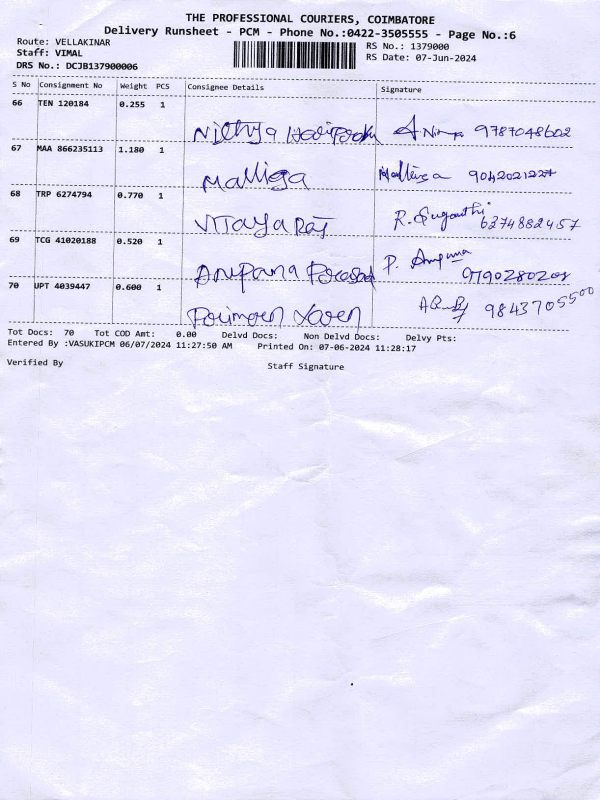 THE PROFESSIONAL COURIERS, COIMBATORE
Delivery Runsheet - PCM - Phone No.:0422-3505555 - Page No.:6
Route: VELLAKINAR
RS No.: 1379000
Staff: VIMAL
RS Date: 07-Jun-2024
DRS No.: DCJB137900006
S No Consignment No Weight PCS Consignee Details Signature
66 TEN 120184 0.255 1
Nithya 9787048602
67 MAA 866235113 1.180 1
Malliga Malliga 9042021227
68 TRP 6274794 0.770 1
Vijaya Raj R. Suganthi 6274882457
69 TCG 41020188 0.520 1
Anupama Prasad P. Anupama
70 UPT 4039447 0.600 1
9843705500
Tot Docs: 70 Tot COD Amt: 0.00 Delvd Docs: Non Delvd Docs: Delvy Pts:
Entered By :VASUKIPCM 06/07/2024 11:27:50 AM Printed On: 07-06-2024 11:28:17
Verified By Staff Signature